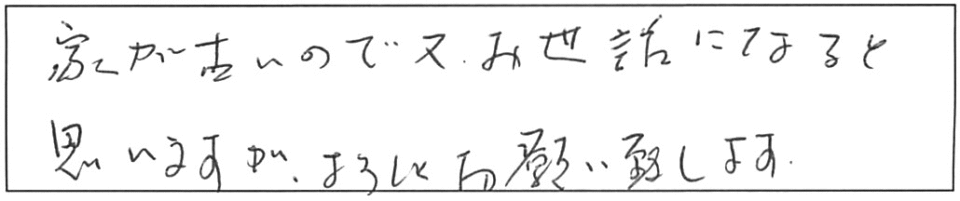 家が古いので又、お世話になると
思いますが、よろしくお願い致します。